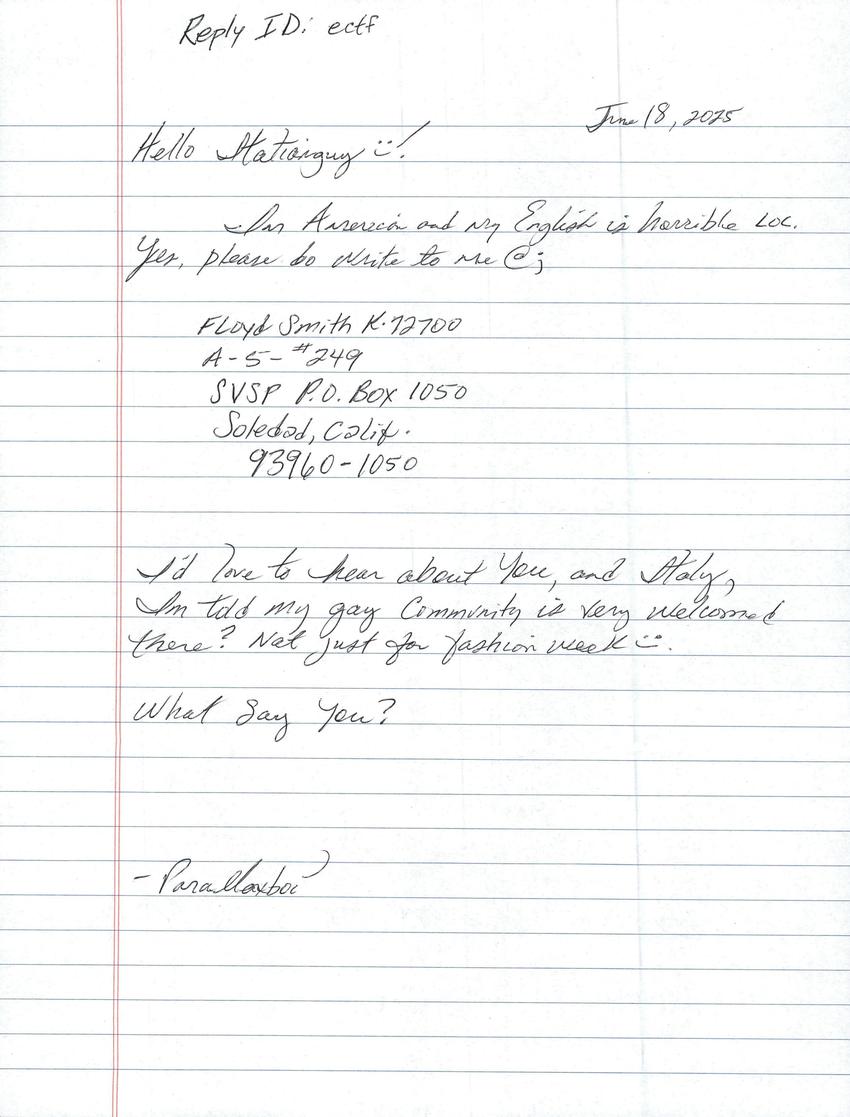 Reply ID: ectf
June 18, 2025
Hello Italianguy :)!
I'm American and my English is horrible LOL.
Yes, please do write to me @;
Floyd Smith K-72700
A-5-#249
SVSP P.O. Box 1050
Soledad, Calif.
93960-1050
I'd love to hear about You, and Italy,
I'm told my gay Community is very welcomed
there? Not just for fashion week :).
What Say You?
- Parallaxboi